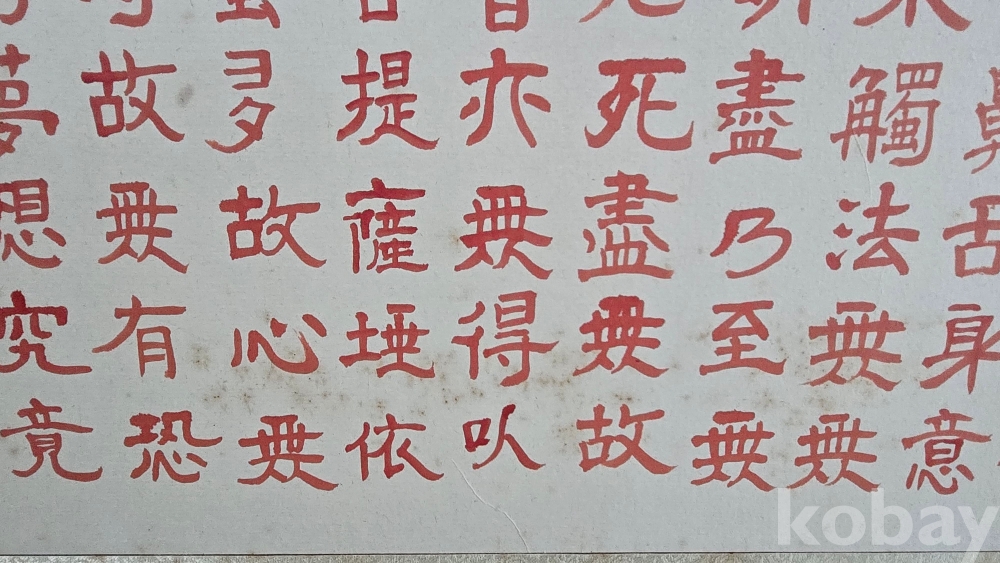 鼻舌身意
觸法無無
盡乃至無
死盡無故
亦無得以
提薩埵依
多故心無
故無有恐
夢想究竟
kobay